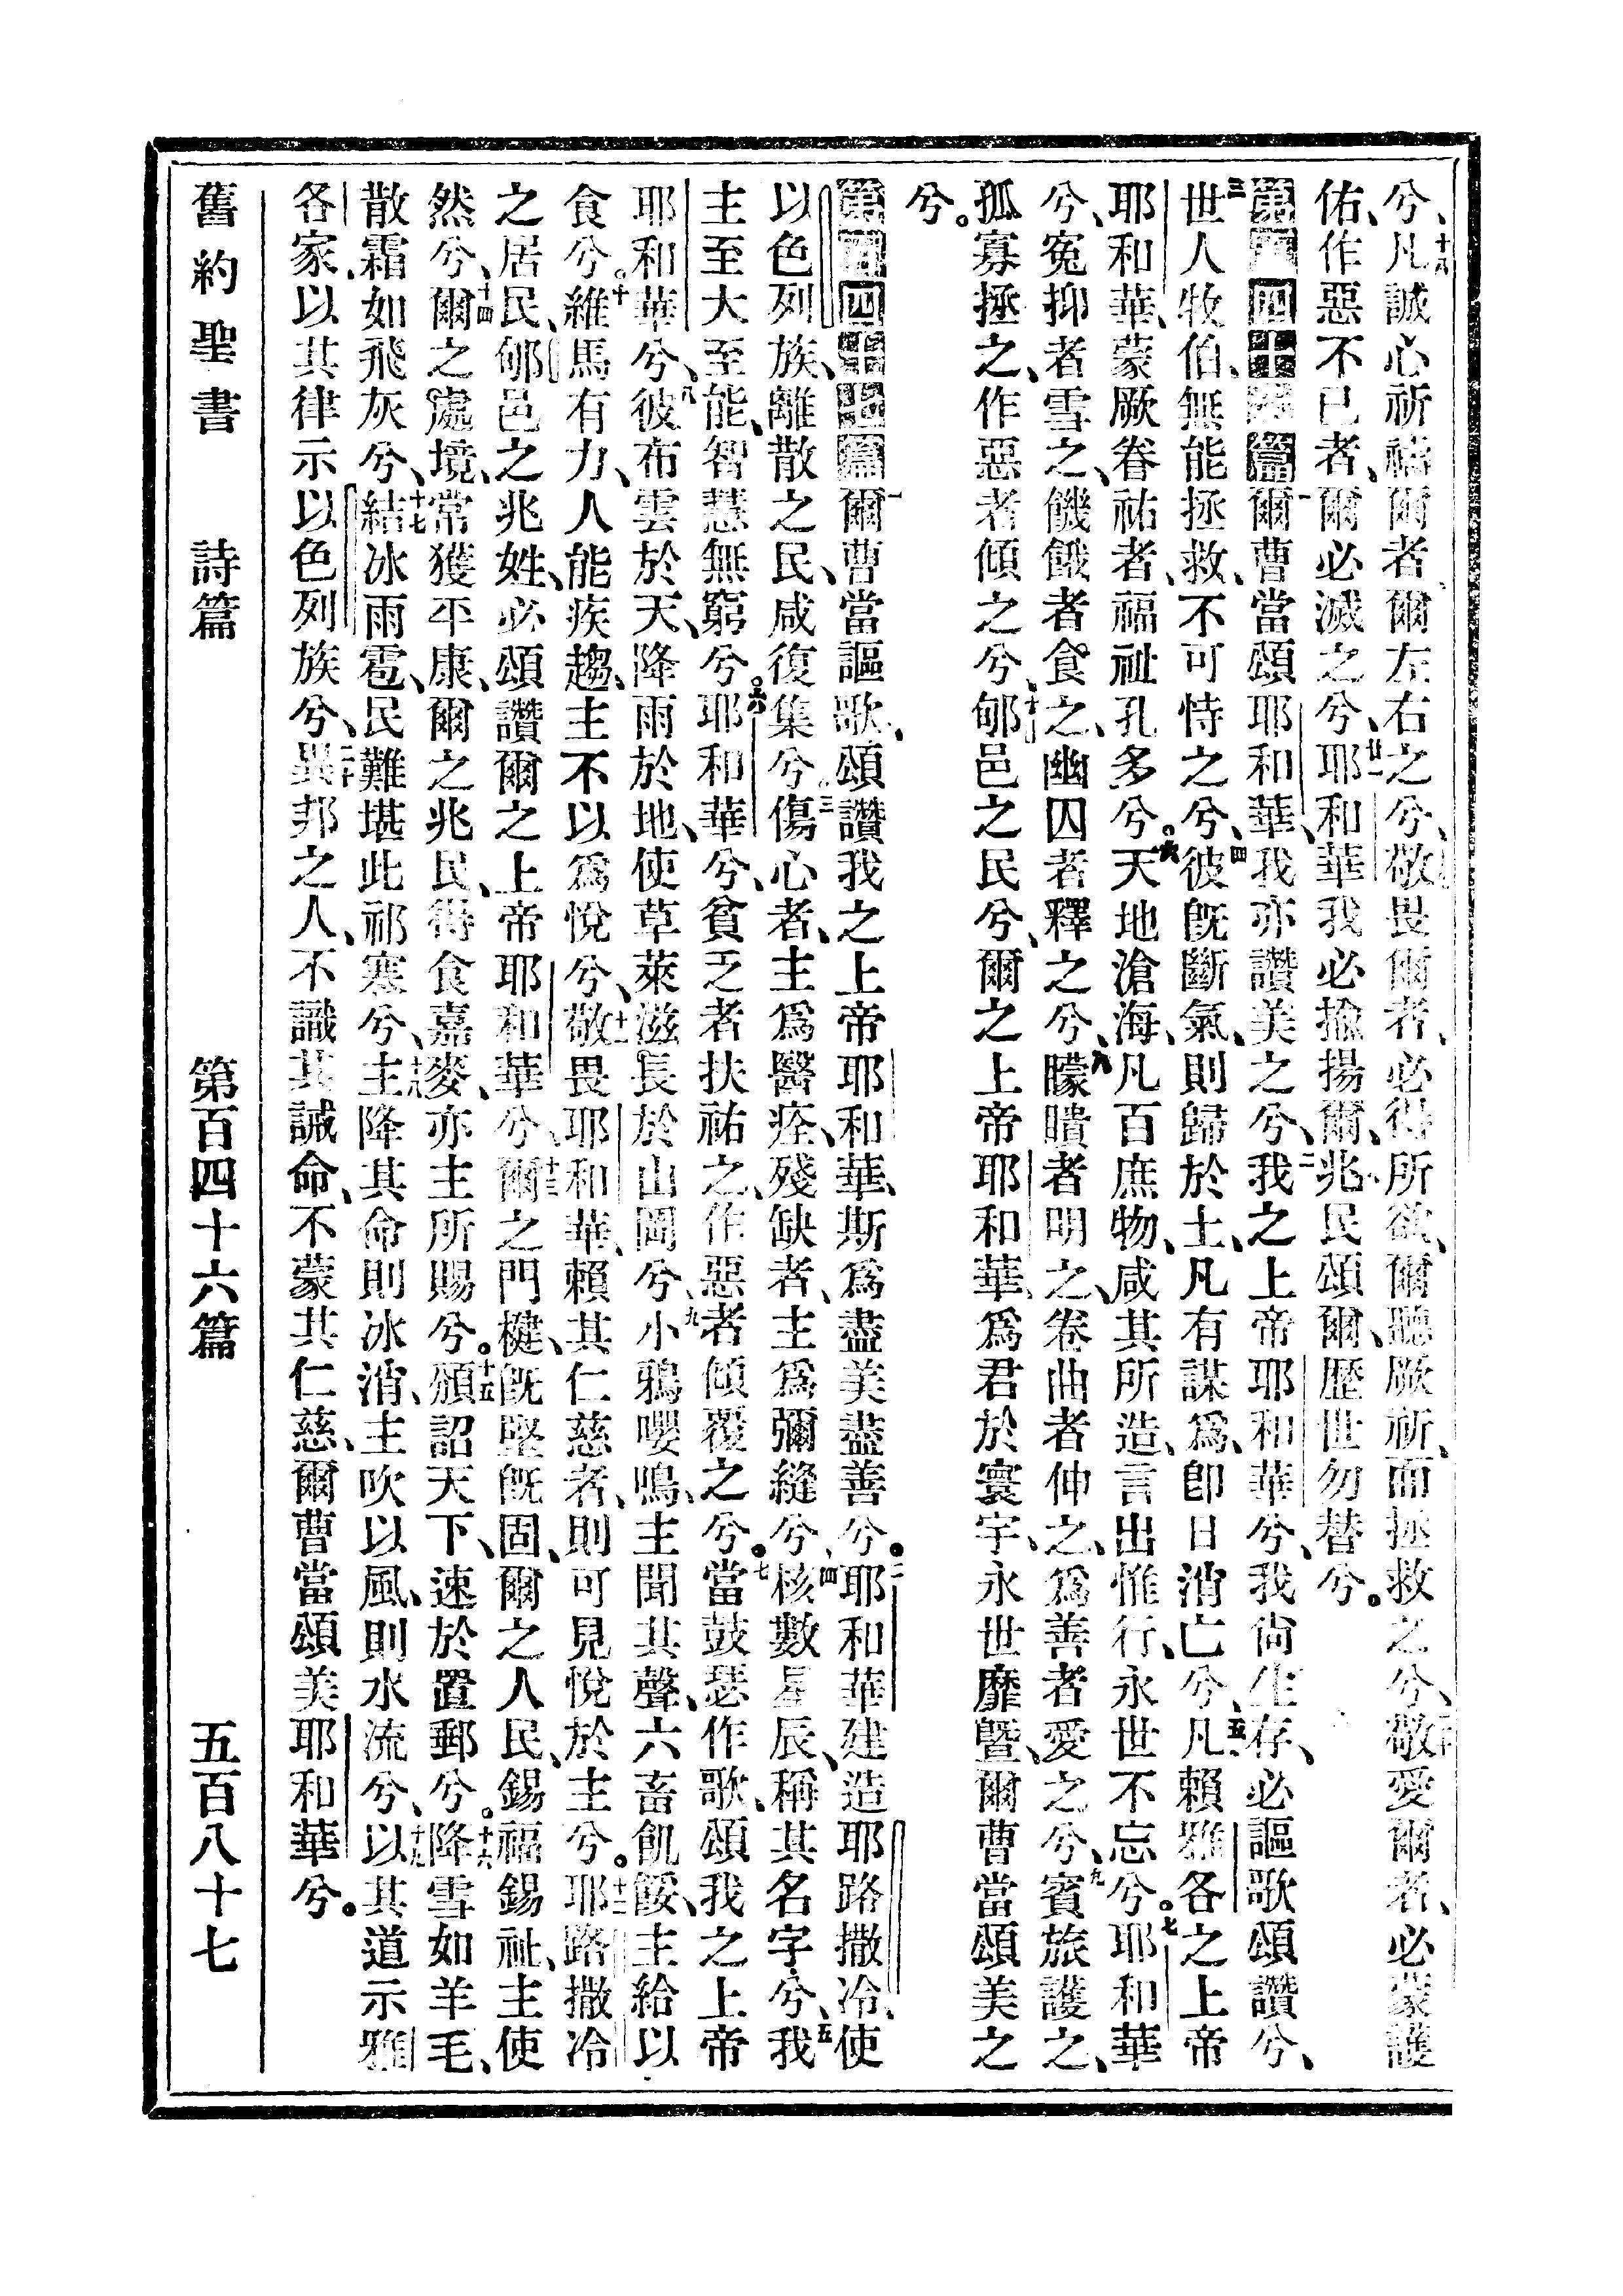 兮、十八凡誠心祈禱爾者、爾左右之兮、敬畏爾者、必得所欲、爾聽厥祈、而拯救之兮、二十敬愛爾者、必蒙護
佑、作惡不已者、爾必滅之兮、廿一耶和華我必揄揚爾、兆民頌爾、歷世勿替兮。
第百四十六篇一爾曹當頌耶和華、我亦讚美之兮、二我之上帝耶和華兮、我尚生存、必謳歌頌讚兮、
三世人牧伯、無能拯救、不可恃之兮、四彼旣斷氣、則歸於土、凡有謀爲、卽日消亡兮、五凡賴雅各之上帝
耶和華、蒙厥眷祐者、福祉孔多兮。六天地滄海、凡百庶物、咸其所造、言出惟行、永世不忘兮。七耶和華
兮、寃抑者雪之、饑餓者食之、幽囚者釋之兮、八矇瞶者明之、卷曲者伸之、爲善者愛之兮、九賓旅護之、
孤寡拯之、作惡者傾之兮、十郇邑之民兮、爾之上帝耶和華、爲君於寰宇、永世靡曁、爾曹當頌美之
兮。
第百四十七篇一爾曹當謳歌、頌讚我之上帝耶和華、斯爲盡美盡善兮。二耶和華建造耶路撒冷、使
以色列族、離散之民、咸復集兮。三傷心者、主爲醫痊、殘缺者、主爲彌縫兮、四核數星辰、稱其名字兮、五我
主至大至能、智慧無窮兮。六耶和華兮、貧乏者扶祐之、作惡者傾覆之兮。七當鼓瑟作歌、頌我之上帝
耶和華兮、八彼布雲於天、降雨於地、使草萊滋長於山岡兮、九小鴉嚶鳴、主聞其聲、六畜飢餒、主給以
食兮。十維馬有力、人能疾趨、主不以爲悅兮、十一敬畏耶和華、賴其仁慈者、則可見悅於主兮。十二耶路撒冷
之居民、郇邑之兆姓、必頌讚爾之上帝耶和華兮、十三爾之門楗、旣堅旣固、爾之人民、錫福錫祉、主使
然兮、十四爾之處境、常獲平康、爾之兆民、得食嘉麥、亦主所賜兮。十五頒詔天下、速於置郵兮。十六降雪如羊毛、
散霜如飛灰兮、十七結冰雨雹、民難堪此祁寒兮、十八主降其命則冰消、主吹以風、則水流兮、十九以其道示雅
各家、以其律示以色列族兮、二十異邦之人、不識其誡命、不蒙其仁慈、爾曹當頌美耶和華兮。
舊約聖書 詩篇 第百四十六篇 五百八十七